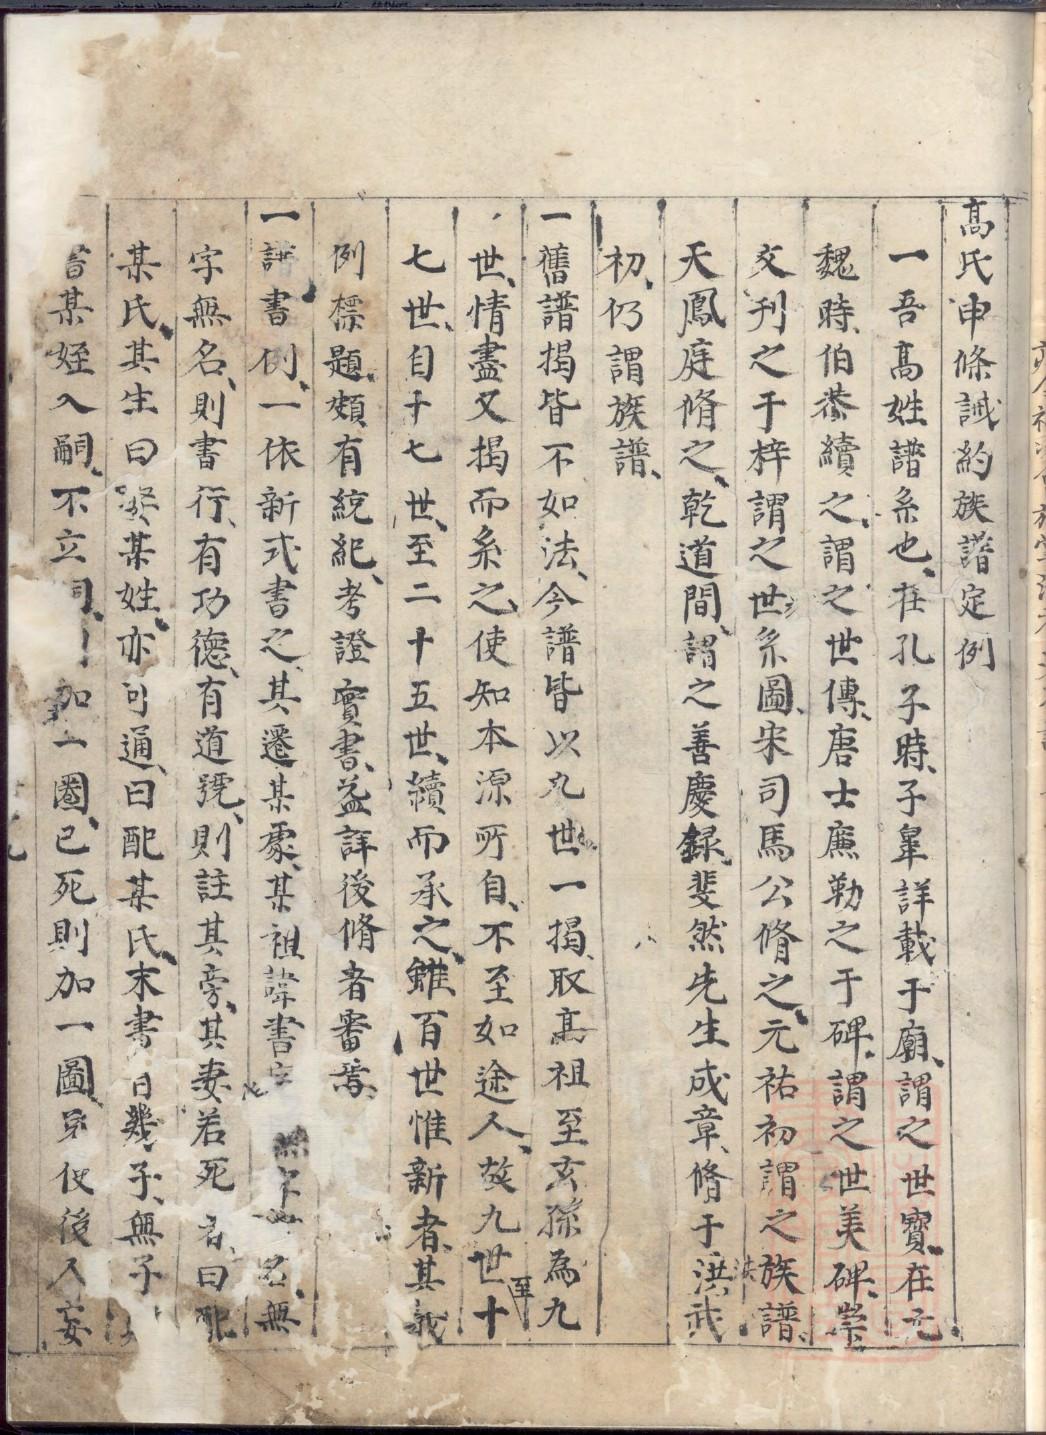 高氏申條誡約族譜定例
一吾高姓譜系也在孔子時子臯詳載于廟謂之世寶在元
魏時伯恭續之謂之世傳唐士廉勒之于碑謂之世美碑崇
文刊之于梓謂之世系圖宋司馬公脩之元祐初謂之族譜
天鳳庭脩之乾道間謂之善慶録斐然先生成章脩于洪武
初仍謂族譜
一舊譜揭皆不如法今譜皆以九世一揭取高祖至玄孫為九
世情盡又揭而系之使知本源所自不至如途人故九世至十
七世自十七世至二十五世續而承之雖百世惟新者其義
例標題頗有統紀考證實書益詳後脩者審焉
一譜書例一依新式書之其遷某處某祖諱書字 名無
字無名則書行有功德有道號則註其旁其妻若死者曰配
某氏其生曰娶某姓亦可通曰配某氏末書曰幾子無子
書某姪入嗣不立 加一圈已死則加一圖 使後人妄